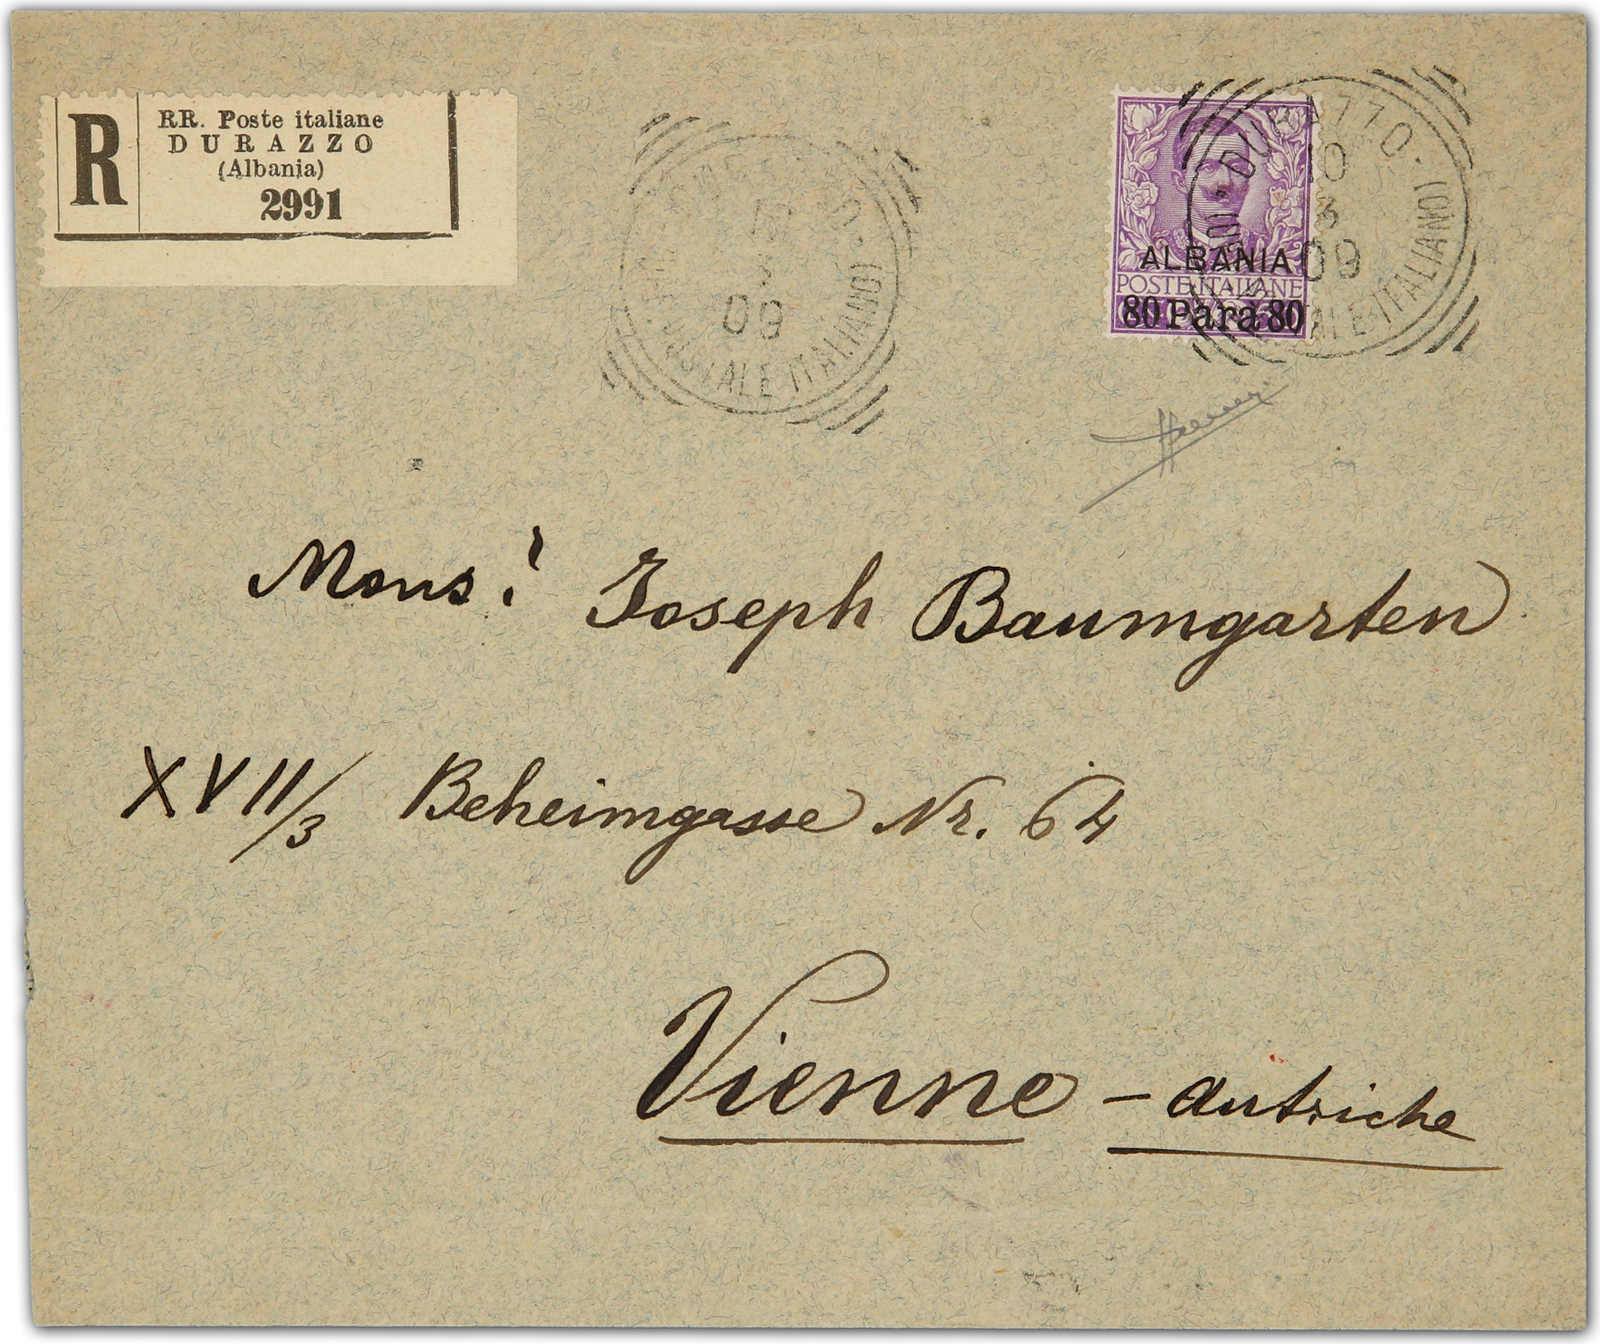 R
RR. Poste italiane
DURAZZO
(Albania)
2991
09
POSTALE ITALIANO)
DURAZZO
10
3
09
ALE ITALIANO)
ALBANIA
POSTE ITALIANE
80 Para 80
Mons.r Joseph Baumgarten
XVII/3 Beheimgasse Nr. 64
Vienne - Autriche